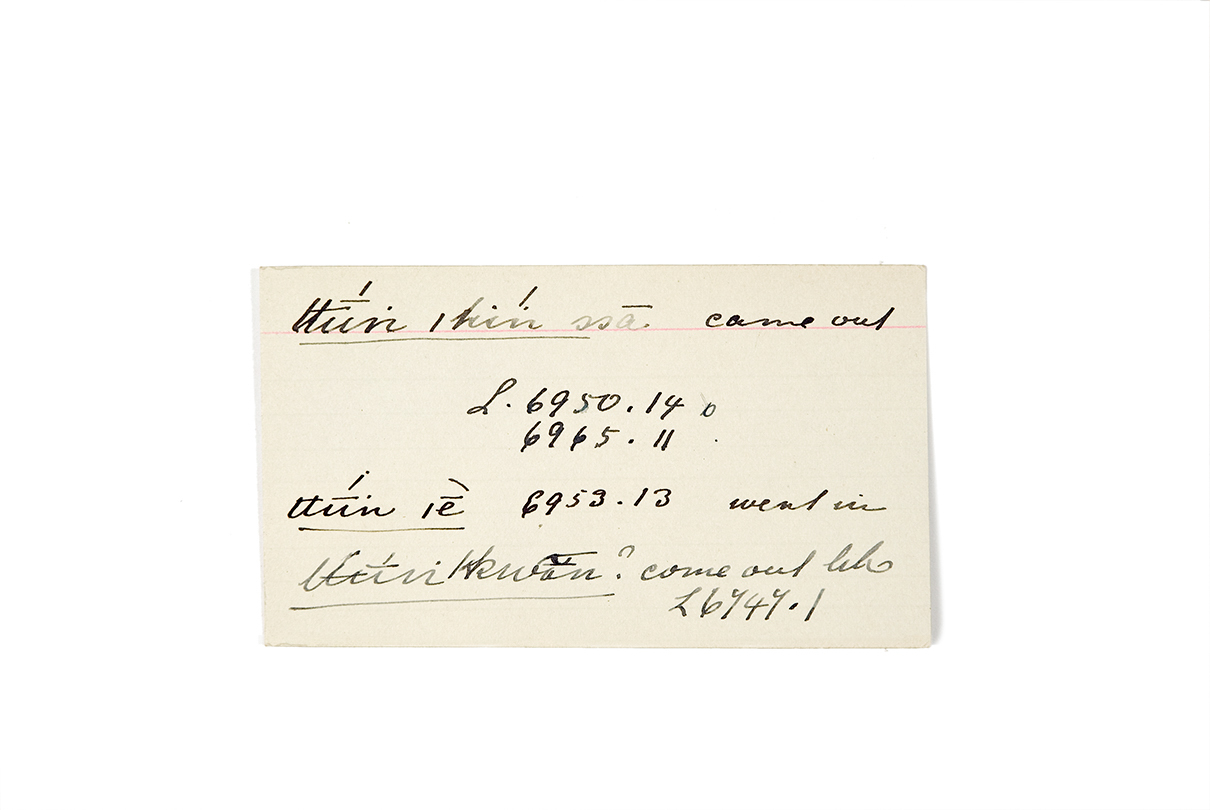 ttū́in ıkiń ssā came out
L. 6950.14
6965.11
ttū́in ıḕ 6953.13 went in
ttū́in !kwā̀n? come out like
L 6747.1